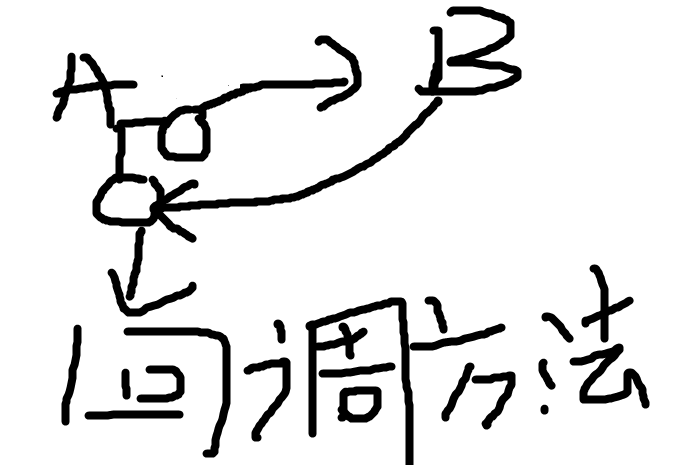 A B
回调方法